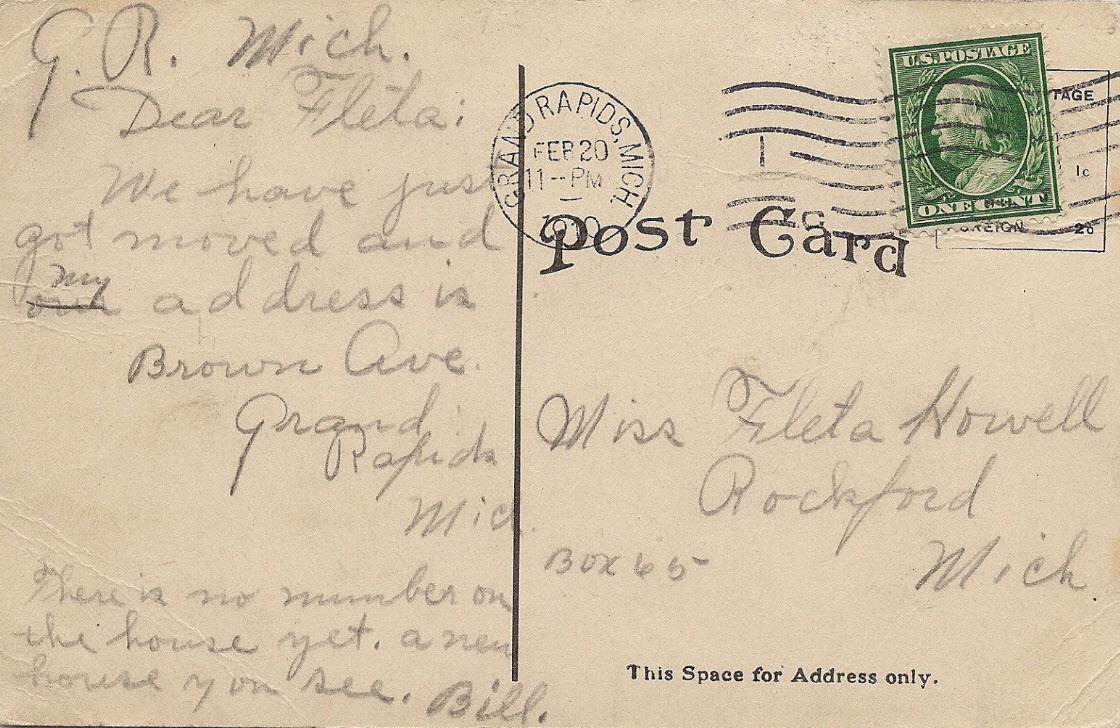 G. R. Mich.
Dear Fleta:
We have just
got moved and
my
our address is
Brown Ave.
Grand
Rapids
Mic
There is no number on
the house yet. a new
house you see. Bill.
GRAND RAPIDS, MICH.
FEB 20
11--PM
1910
U.S. POSTAGE
ONE CENT
TAGE
1c
2c
Post Card
Miss Fleta Howell
Rockford
Box 65
Mich
This Space for Address only.